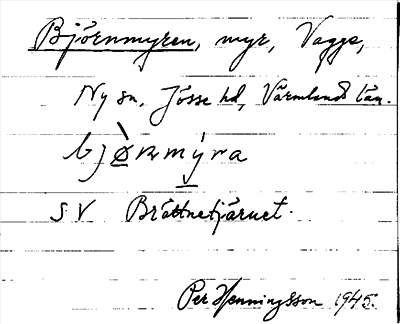 Björnmyren, myr, Vagge,
Ny sn, Jösse hd, Värmlands län.
bjø̀ɴmýra
SV Bråttnetjärnet.
Per Henningsson 1945.